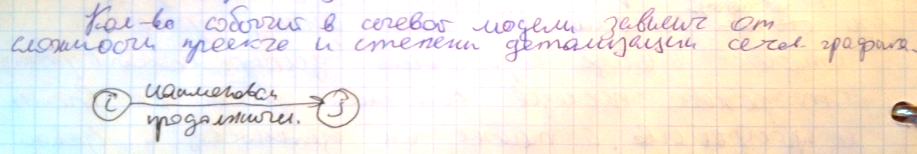 Кол-во событий в сетевой модели зависит от
сложности проекта и степени детализации сетев. графика.
наименован
i j
продолжител.